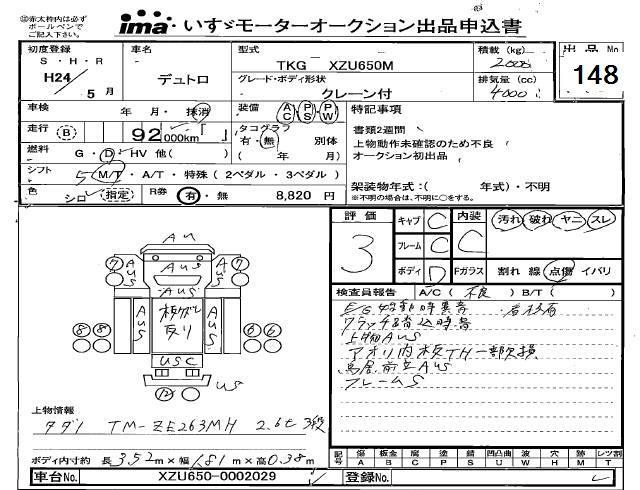 ※赤太枠内は必ず
ボールペンで
ご記入下さい。
ima いすゞモーターオークション出品申込書
初度登録 車名 型式 積載(kg) 出品No
S・H・R TKG XZU650M 2000 148
H24/5月 デュトロ グレード・ボディ形状 排気量(cc)
クレーン付 4000
車検 年 月・抹消 装備 AC PS PW 特記事項
走行 B 92000km「 」 タコグラフ 書類2週間
有・無 別体 上物動作未確認のため不良
燃料 G・D・HV 他( ) ( 年 月) オークション初出品
シフト 5 M/T・A/T・特殊(2ペダル・3ペダル)
色 シロ 指定 R券 有・無 8,820 円 架装物年式:( 年式)・不明
※不明の場合は、不明に○をする。
評価 キャブ C 内装 汚れ 破れ ヤニ スレ
3 フレーム C C
ボディ D Fガラス 割れ 線 点傷 イバリ
検査員報告 A/C(不良) B/T( )
AUS
⑦ AUS AUS AUS ⑦
AUS 板ガレ 反り AUS
⑧ ⑧ ⑥ ⑥
USC
⑫ US
EG始動時異音
クラッチ踏込時音
上物AUS
アオリ内板TH一部欠損
鳥居前立AUS
フレームS
上物情報
タダノ TM-ZE263MH 2.6t 3段
ボディ内寸約 長3.52m×幅1.81m×高0.38m
記号 傷A 板金B 腐C 塗P 錆S 凹凸曲U 波W 穴H 跡M レッツ割T
車台No. XZU650-0002029 登録No.